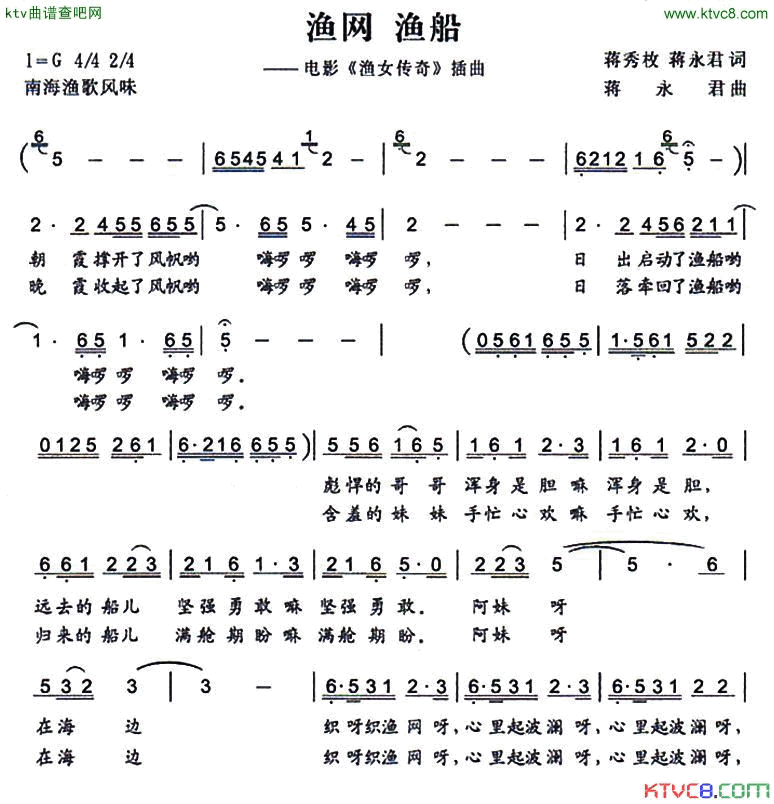 ktv曲谱查吧网
www.ktvc8.com
渔网 渔船
1=G 4/4 2/4
—— 电影《渔女传奇》插曲
蒋秀枚 蒋永君 词
南海渔歌风味
蒋 永 君 曲
( 6 5 – – – | 6545 41 1 2 – | 6 2 – – – | 6212 16 6 5 – ) |
2· 2 455 655 | 5· 65 5· 45 | 2 – – 2· | 2 456 211 |
朝 霞撑开了风帆哟 嗨啰 啰 嗨啰 啰, 日 出启动了渔船哟
晚 霞收起了风帆哟 嗨啰 啰 嗨啰 啰, 日 落牵回了渔船哟
1· 65 1· 65 | 5 – – – | ( 0561 655 | 1·561 522 |
嗨啰 啰 嗨啰 啰.
嗨啰 啰 嗨啰 啰.
0125 261 | 6·216 655 ) | 556 165 | 161 2·3 | 161 2·0 |
彪悍的 哥 哥 浑身是胆嘛 浑身是胆,
含羞的 妹 妹 手忙心欢嘛 手忙心欢,
661 223 | 216 1·3 | 216 5·0 | 223 5 | 5· 6 |
远去的 船儿 坚强勇敢嘛 坚强勇敢. 阿妹 呀
归来的 船儿 满舱期盼嘛 满舱期盼. 阿妹 呀
532 3 | 3 – | 6·531 2·3 | 6·531 2·3 | 6·531 2·3 |
在海 边 织呀织渔网呀,心里起波澜呀,心里起波澜呀,
在海 边 织呀织渔网呀,心里起波澜呀,心里起波澜呀,
KTVC8.com